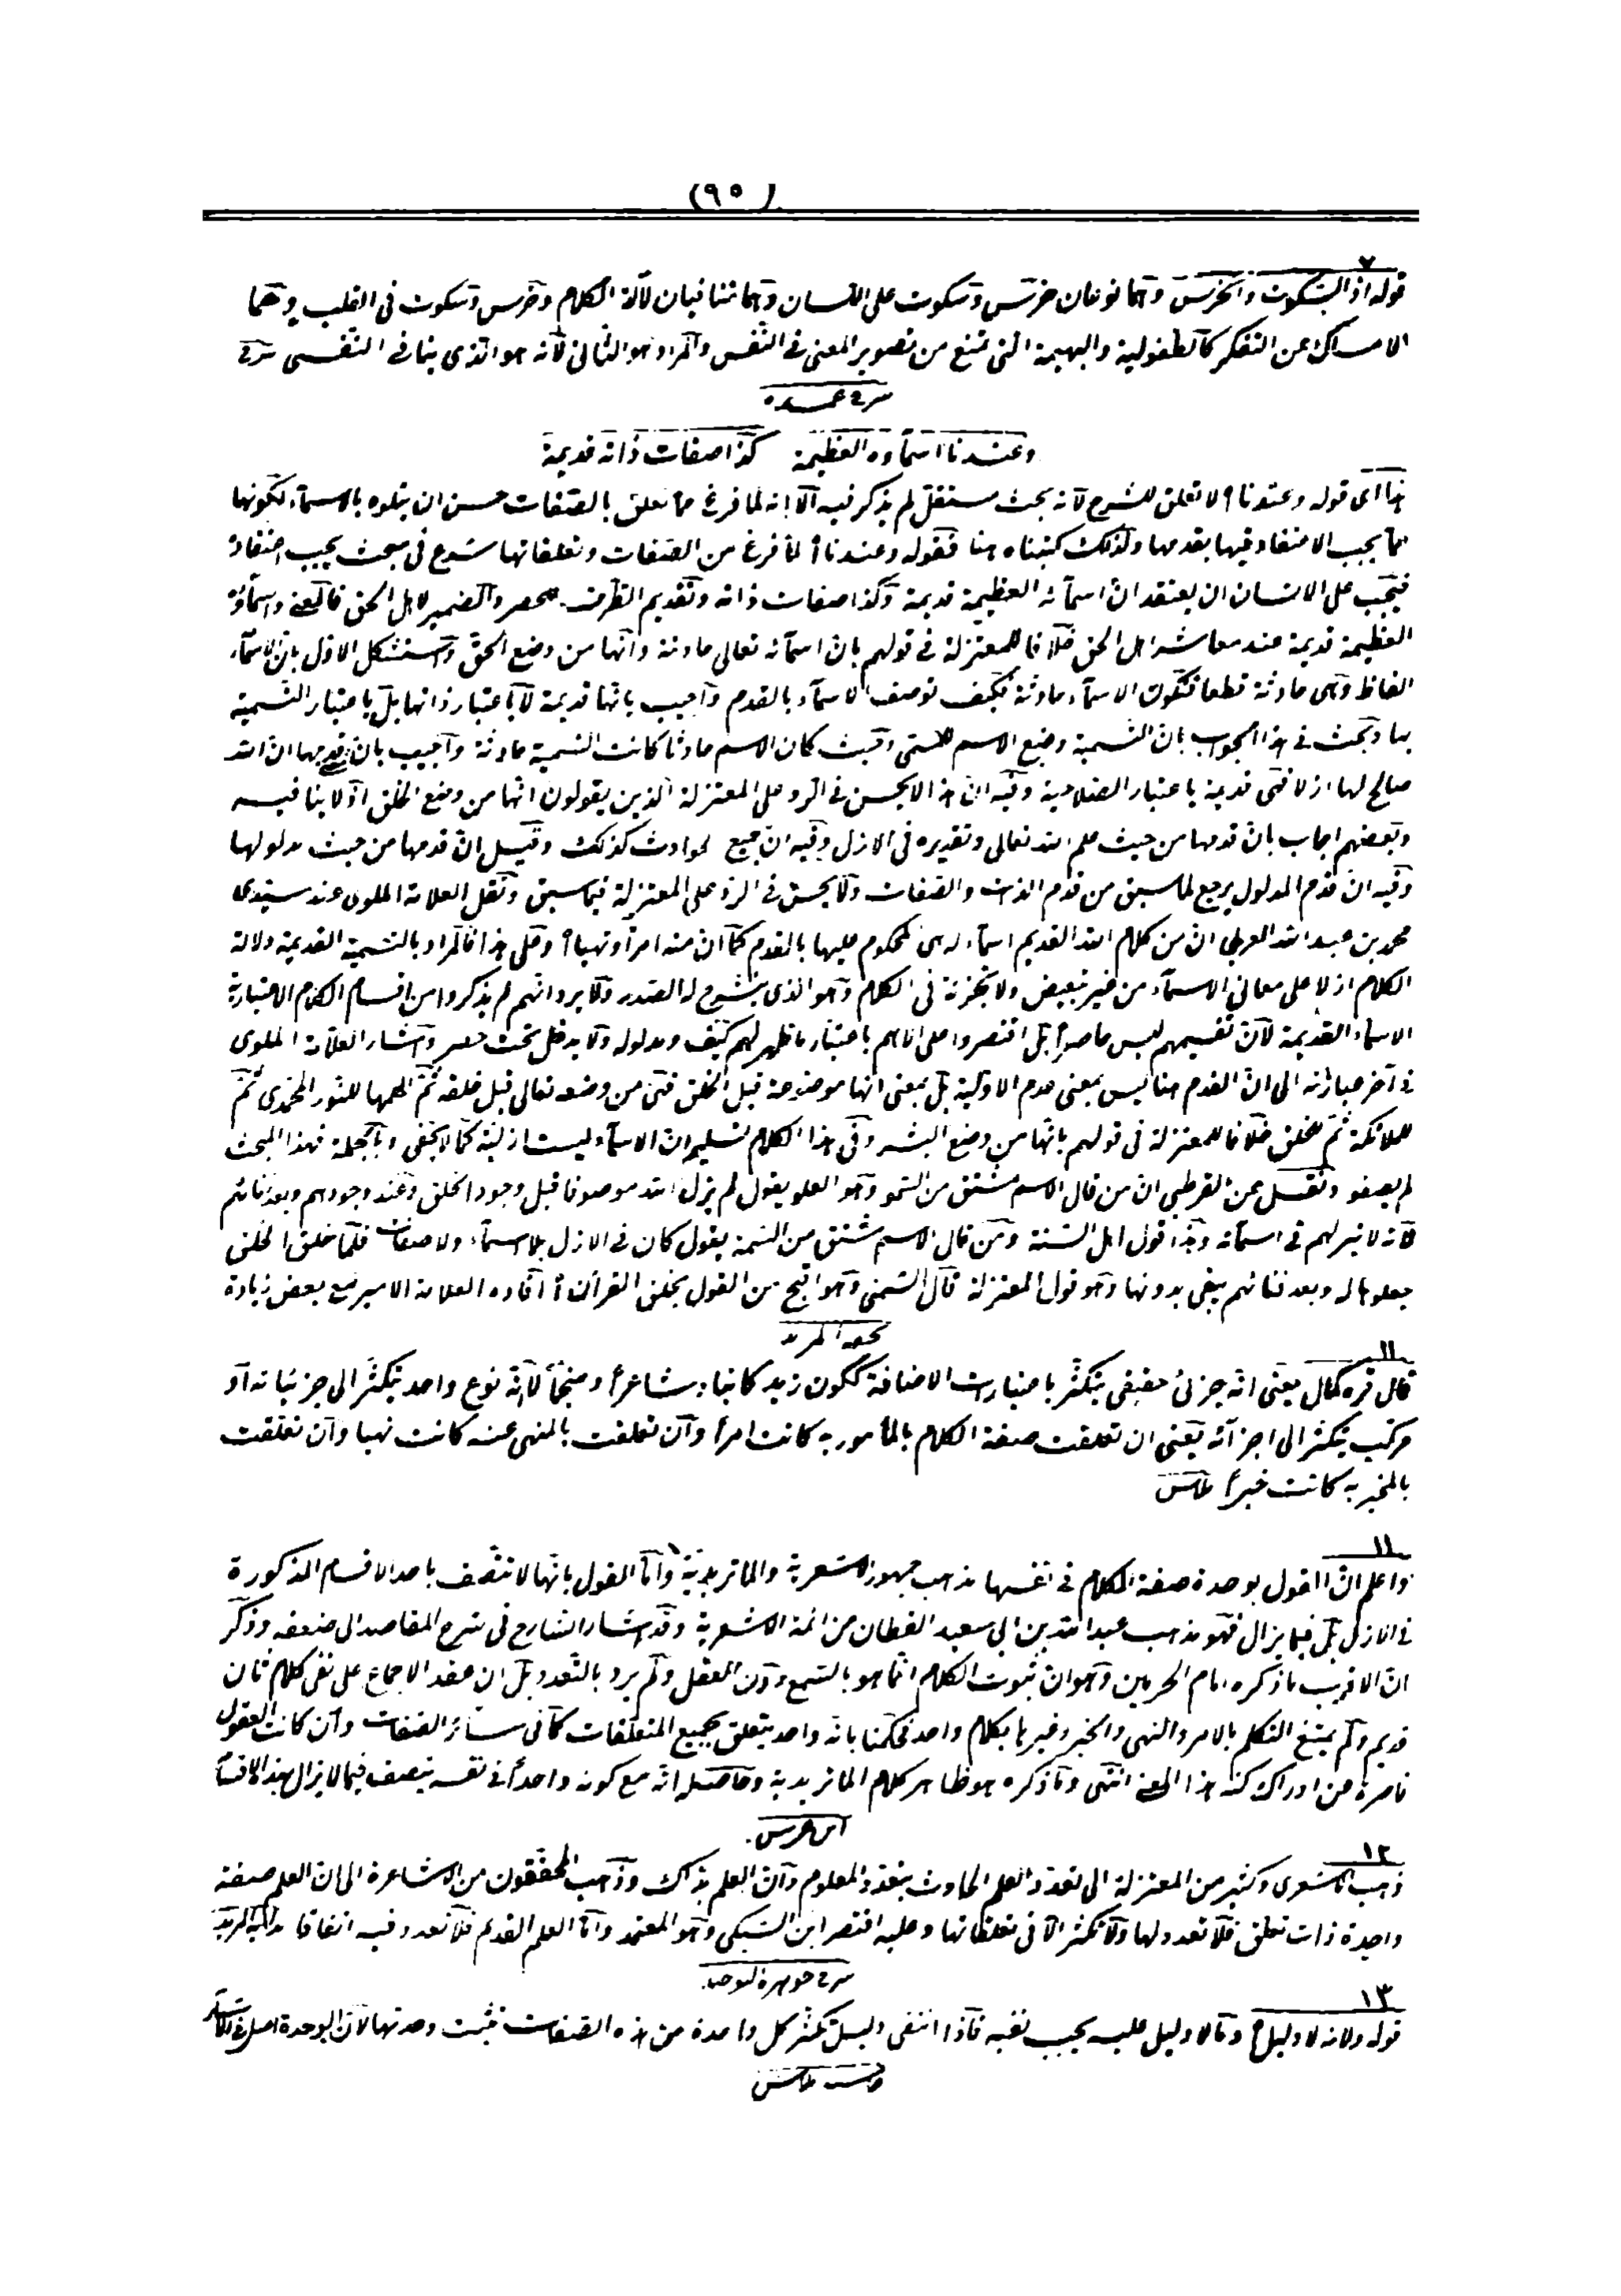 (٩٥)
٧
قوله اذ السكوت والخرس وهما نوعان خرس وسكوت على اللسان وهما تنافيان لآلة الكلام وخرس وسكوت فى القلب وهما
الامساك عن التفكر كالطفولية والبهيمة التى تمنع من تصوير المعنى فى النفس والمراد هو الثانى لأنه هو الذى ينافى النفسى
شرح عمده
وعندنا اسماؤه العظيمة كذا صفات ذاته قديمة
هذا اى قوله وعندنا لا تعلق للشرح لأنه بحث مستقل لم يذكر فيه الا انه لما فرغ مما تعلق بالصفات حسن ان يتلوه بالاسماء لكونها
مما يجب الاعتقاد فيها بقدمها ولذلك كتبناه هنا فقوله وعندنا أ لما فرغ من الصفات وتعلقاتها شرع فى مبحث يجب اعتقاده
فيجب على الانسان ان يعتقد ان اسمائه العظيمة قديمة وكذا صفات ذاته وتقديم الظرف للحصر والضمير لاهل الحق فالمعنى واسماؤه
العظيمة قديمة عند معاشر اهل الحق خلافا للمعتزلة فى قولهم بان اسمائه تعالى حادثة وانها من وضع الخلق واستشكل الاول بان الاسماء
الفاظ وهى حادثة قطعا فتكون الاسماء حادثة فكيف توصف الاسماء بالقدم واجيب بانها قديمة لا باعتبار ذاتها بل باعتبار التسمية
بها وبحث فى هذا الجواب بان التسمية وضع الاسم للمسمى وحيث كان الاسم حادثا كانت التسمية حادثة واجيب بان قدمها ان الله
صالح لها ازلا فهى قديمة باعتبار الصلاحية وفيه ان هذا لا يحسن فى الرد على المعتزلة الذين يقولون انها من وضع الخلق اذ لا ينافيه
وبعضهم اجاب بان قدمها من حيث علم الله تعالى وتقديره فى الازل وفيه ان جميع الحوادث كذلك وقيل ان قدمها من حيث مدلولها
وفيه ان قدم المدلول يرجع لما سبق من قدم الذات والصفات ولا يحسن فى الرد على المعتزلة فيما سبق ونقل العلامة الملوى عند سيدى
محمد بن عبد الله العربى ان من كلام الله القديم اسماء له هى المحكوم عليها بالقدم كما ان منه امرا ونهيا أ وعلى هذا فالمراد بالتسمية القديمة دلالة
الكلام ازلا على معانى الاسماء من غير تبعيض ولا تجزئة فى الكلام وهو الذى ينشرح له الصدر ولا يرد انهم لم يذكروا من اقسام الكلام الاعتبارية
الاسماء القديمة لان تقسيمهم ليس حاصرا بل اقتصروا على الاهم باعتبار ما ظهر لهم كيف ومدلوله ولا يدخل تحت حصر واشار العلامة الملوى
فى آخر عبارته الى ان القدم هنا ليس بمعنى عدم الاولية بل بمعنى انها موضوعة قبل الخلق فهى من وضعه تعالى قبل خلقه ثم الهمها للنور المحمدى ثم
للملائكة ثم للخلق خلافا للمعتزلة فى قولهم بانها من وضع البشر وفى هذا الكلام تسليم ان الاسماء ليست ازلية كما لا يخفى وبالجملة فهذا المبحث
لم يصفو ونقل عن القرطبى ان من قال الاسم مشتق من السمو وهو العلو يقول لم يزل الله موصوفا قبل وجود الخلق وعند وجودهم وبعد فنائهم
لانه لا تأثير لهم فى اسمائه وهذا قول اهل السنة ومن قال الاسم مشتق من السمة يقول كان فى الازل بلا اسماء ولا صفات فلما خلق الخلق
جعلوها له وبعد فنائهم يبقى بدونها وهو قول المعتزلة قال الشمنى وهو اقبح من القول بخلق القرأن أ افاده العلامة الامير مع بعض زيادة
تحفة المريد
١١
قال قره كمال يعنى انه جزئى حقيقى يتكثر باعتبارات الاضافة ككون زيد كاتبا وشاعرا ومنجما لا انه نوع واحد يتكثر الى جزئياته او
مركب يتكثر الى اجزائه يعنى ان تعلقت صفة الكلام بالمأمور به كانت امرا وان تعلقت بالمنهى عنه كانت نهيا وان تعلقت
بالمخبر به كانت خبرا
١١
واعلم ان القول بوحدة صفة الكلام فى نفسها مذهب جمهور الاشعرية والماتريدية واما القول بانها لا تتصف باحد الاقسام المذكورة
فى الازل بل فيما يزال فهو مذهب عبد الله بن ابى سعيد القطان من ائمة الاشعرية وقد اشار الشارح فى شرح المقاصد الى ضعفه وذكر
ان الاقرب ما ذكره امام الحرمين وهو ان ثبوت الكلام انما هو بالسمع دون العقل ولم يرد بالتعدد بل انعقد الاجماع على نفى كلام ثان
قديم ولم يمتنع التكلم بالامر والنهى والخبر وغيرها بكلام واحد فحكمنا بانه واحد يتعلق بجميع المتعلقات كما فى سائر الصفات وان كانت العقول
قاصرة عن ادراك كنه هذا المعنى انتهى وما ذكره هو ظاهر كلام الماتريدية وحاصله انه مع كونه واحدا فى نفسه يتصف فيما لا يزال بهذه الاقسام
ابن غرس
١٢
ذهب الاشعرى وكثير من المعتزلة الى تعدد العلم الحادث بتعدد المعلوم وان العلم بذاك وذهب المحققون من الاشاعرة الى ان العلم صفة
واحدة ذات تعلق فلا تعدد لها ولا تكثر الا فى تعلقاتها وعليه اقتصر ابن السبكى وهو المعتمد واما العلم القديم فلا تعدد فيه اتفاقا هداية المريد
شرح جوهرة التوحيد
١٣
قوله ولانه لا دليل أ وما لا دليل عليه يجب نفيه فاذا انتفى دليل تكثر كل واحدة من هذه الصفات ثبت وحدتها لان الوحدة اصل